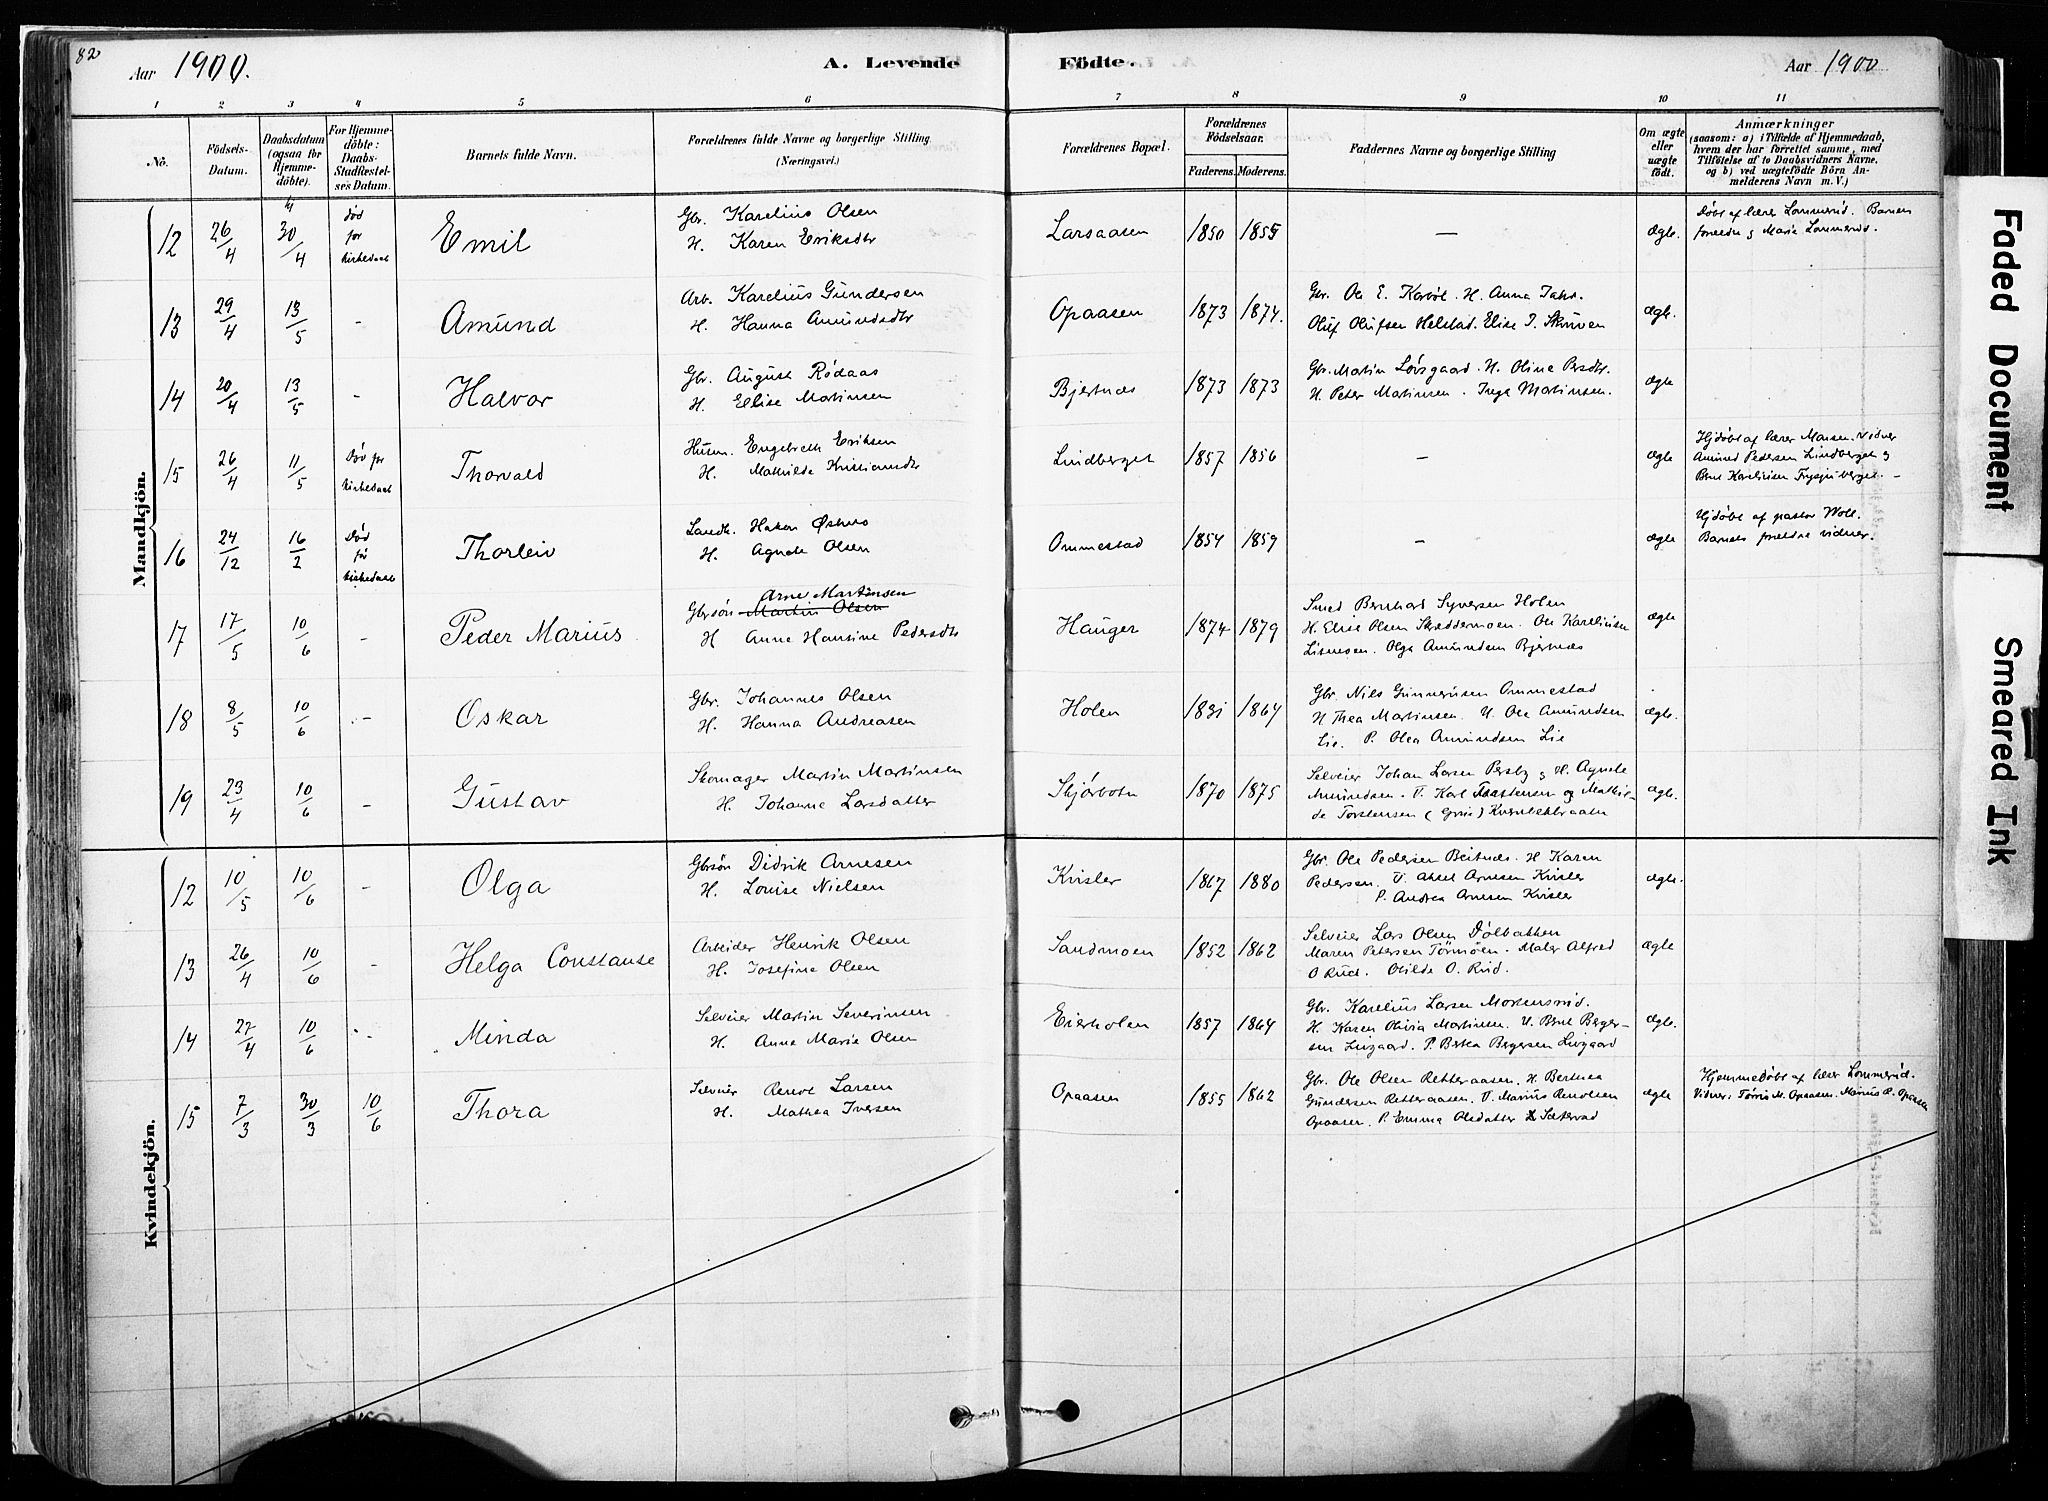 82
Aar 1900.
A. Levende Födte.
Aar 1900
1 2 3 4 5 6 7 8 9 10 11
No.
Födsels-Datum.
Daabsdatum (ogsaa for Hjemme-döbte).
For Hjemme-döbte: Daabs-Stadfæstel-ses Datum.
Barnets fulde Navn.
Forældrenes fulde Navne og borgerlige Stilling (Næringsvei.)
Forældrenes Bopæl.
Forældrenes Födselsaar.
Faderens. Moderens.
Faddernes Navne og borgerlige Stilling
Om ægte eller uægte födt.
Anmærkninger
(saasom: a) i Tilfælde af Hjemmedaab,
hvem der har forrettet samme, med
Tilföielse af to Daabsvidners Navne,
og b) ved uægtefödte Börn An-
melderens Navn m. V.)
Mandkjön.
12 26/4 30/4 død for kirkedaab Emil
Gbr. Karelius Olsen
H. Karen Eriksdtr
Larsaasen 1850 1855 — ægte.
Døbt af lærer Lommerud. Barnets
forældre & Maria Lommerud.
13 29/4 13/5 - Amund
Arb. Karelius Gundersen
H. Hanna Amundsdtr
Opaasen 1873 1874.
Gbr. Ole E. Korbøl. H. Anna
Oluf Olufsen Helstad. Elise J. Skruven
ægte.
14 20/4 13/5 - Halvor
Gbr. August Rødaas
H. Ellise Martinsen
Bjertnæs 1873 1873
Gbr. Martin Løvsgaard. H. Oline
U. Peter Martinsen. Inga Martinsen.
ægte
15 26/4 11/5 Død for kirkedaab Thorvald
Husm. Engebreth Eriksen
H. Mathilde Kristiansdtr
Lindberget 1857 1856 — ægte
Hjdøbt af lærer Monsen. Vidner
Amund Pedersen Lindberget &
Bent Karelinsen Frysjuberget. -
16 24/12 16/2 Død før kirkedaab Thorleiv
Landh. Haken Østmo
H. Agnete Olsen
Ommestad 1854 1859 — ægte
Hjdøbt af pastor Woll.
Barnets forældre vidner.
17 17/5 10/6 - Peder Marius
Arne Martinsen
Gbrsøn Martin Olsen
H Anne Hansine Pedersdtr
Hauger 1874 1879
Smed Bernhard Syversen Holen
H. Elise Olsen Skræddermoen. Ole Karelinsen
Olga Amundsen Bjertnæs
ægte
18 8/5 10/6 - Oskar
Gbr. Johannes Olsen
H. Hanna Andreasen
Holen 1864
Gbr Niels Gunnerusen Ommestad
H Thea Martinsen. U. Ole Amundsen
Lie. P. Olea Amundsen Lie
ægte.
19 23/4 10/6 - Gustav
Skomager Martin Martinsen
H. Johanne Larsdatter
Skjørbotn 1870 1875
Selveier Johan Larsen Persby & H. Agnete
Amundsen. U. Karl Thorstensen og Mathil-
de Torstensen (Grue) Kvernbekbraaten
ægte.
Kvindekjön.
12 10/5 10/6 - Olga
Gbrsøn Didrik Arnesen
H. Louise Nielsen
Kvisler 1867 1880
Gbr. Ole Pedersen Beitnæs. H Karen
Pedersen. U. Aksel Arnesen Kvisler
P. Andrea Arnesen Kvisler
ægte.
13 26/4 10/6 - Helga Constanse
Arbeider Henrik Olsen
H. Josefine Olsen
Sandmoen 1852 1862
Selveier Lars Olsen Dølbakken
Maren Petersen Tørmoen. Maler Alfred
O Rud. Hilda O. Rud.
ægte
14 27/4 10/6 - Minda
Selveier Martin Severinsen
H. Anne Marie Olsen
Eierholen 1857 1864
Gbr. Karelius Larsen Mortensrud.
H. Karen Olivia Martinsen. U. Bent Berger-
sen Livgaard. P. Berta Bergersen Livgaard
ægte.
15 7/3 30/3 10/6 Thora
Selveier Renot Larsen
H. Mathea Iversen
Opaasen 1855 1862
Gbr. Ole Olsen Retteraasen. H. Berthea
Gundersen Retteraasen. U. Marius Renotsen
Opaasen. P. Emma Olsdatter Sæterrud
ægte
Hjemmedøbt af lærer Lommerud.
Vidner: Tørris M. Opaasen. Marius R. Opaasen
Faded Document
Smeared Ink